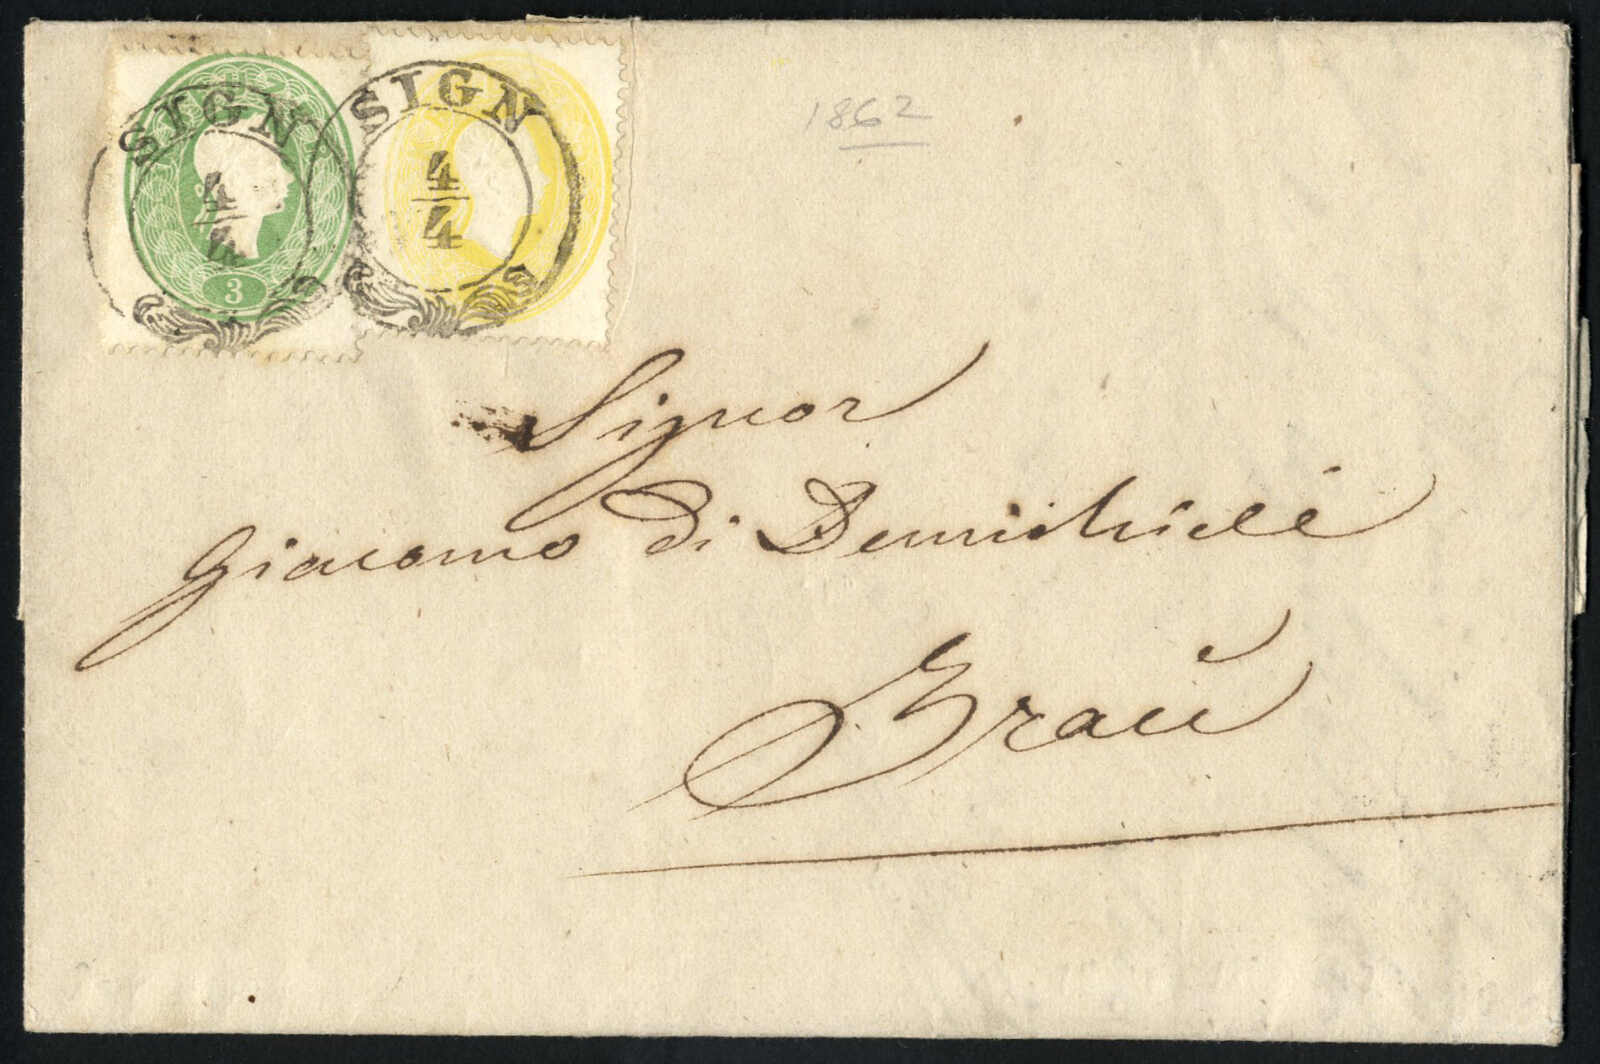 SIGN
4/4
3
SIGN
4/4
1862
Signor
Giacomo di Demichieli
Traù